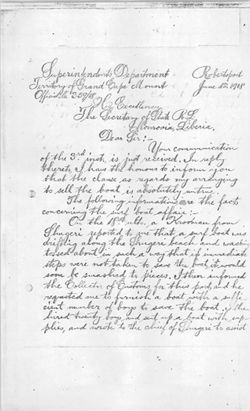 Superintendent's Department
Robertsport
Territory of Grand Cape Mount
June 5th, 1918
Official
His Excellency,
The Secretary of State R.L.
Monrovia, Liberia.
Dear Sir:
Your communication
of the 3rd inst. is just received. In reply
thereto I has the honor to inform you
that the clause as regards my arranging
to sell the boat is absolutely untrue.
The following informations are the facts
concerning the surf boat affair:-
On the ulto, a Krooman from
reported to me that a surf boat was
drifting along the beach and was
tossed about in such a way that if immediate
steps were not taken to save the boat it would
soon be smashed to pieces. I then informed
the Collector of Customs for this port, and he
requested me to furnish a boat with a suffi
cient number of boys to save the boat. I
hired twenty boys and set up a boat with sup
plies, and wrote to the chief of to avoid